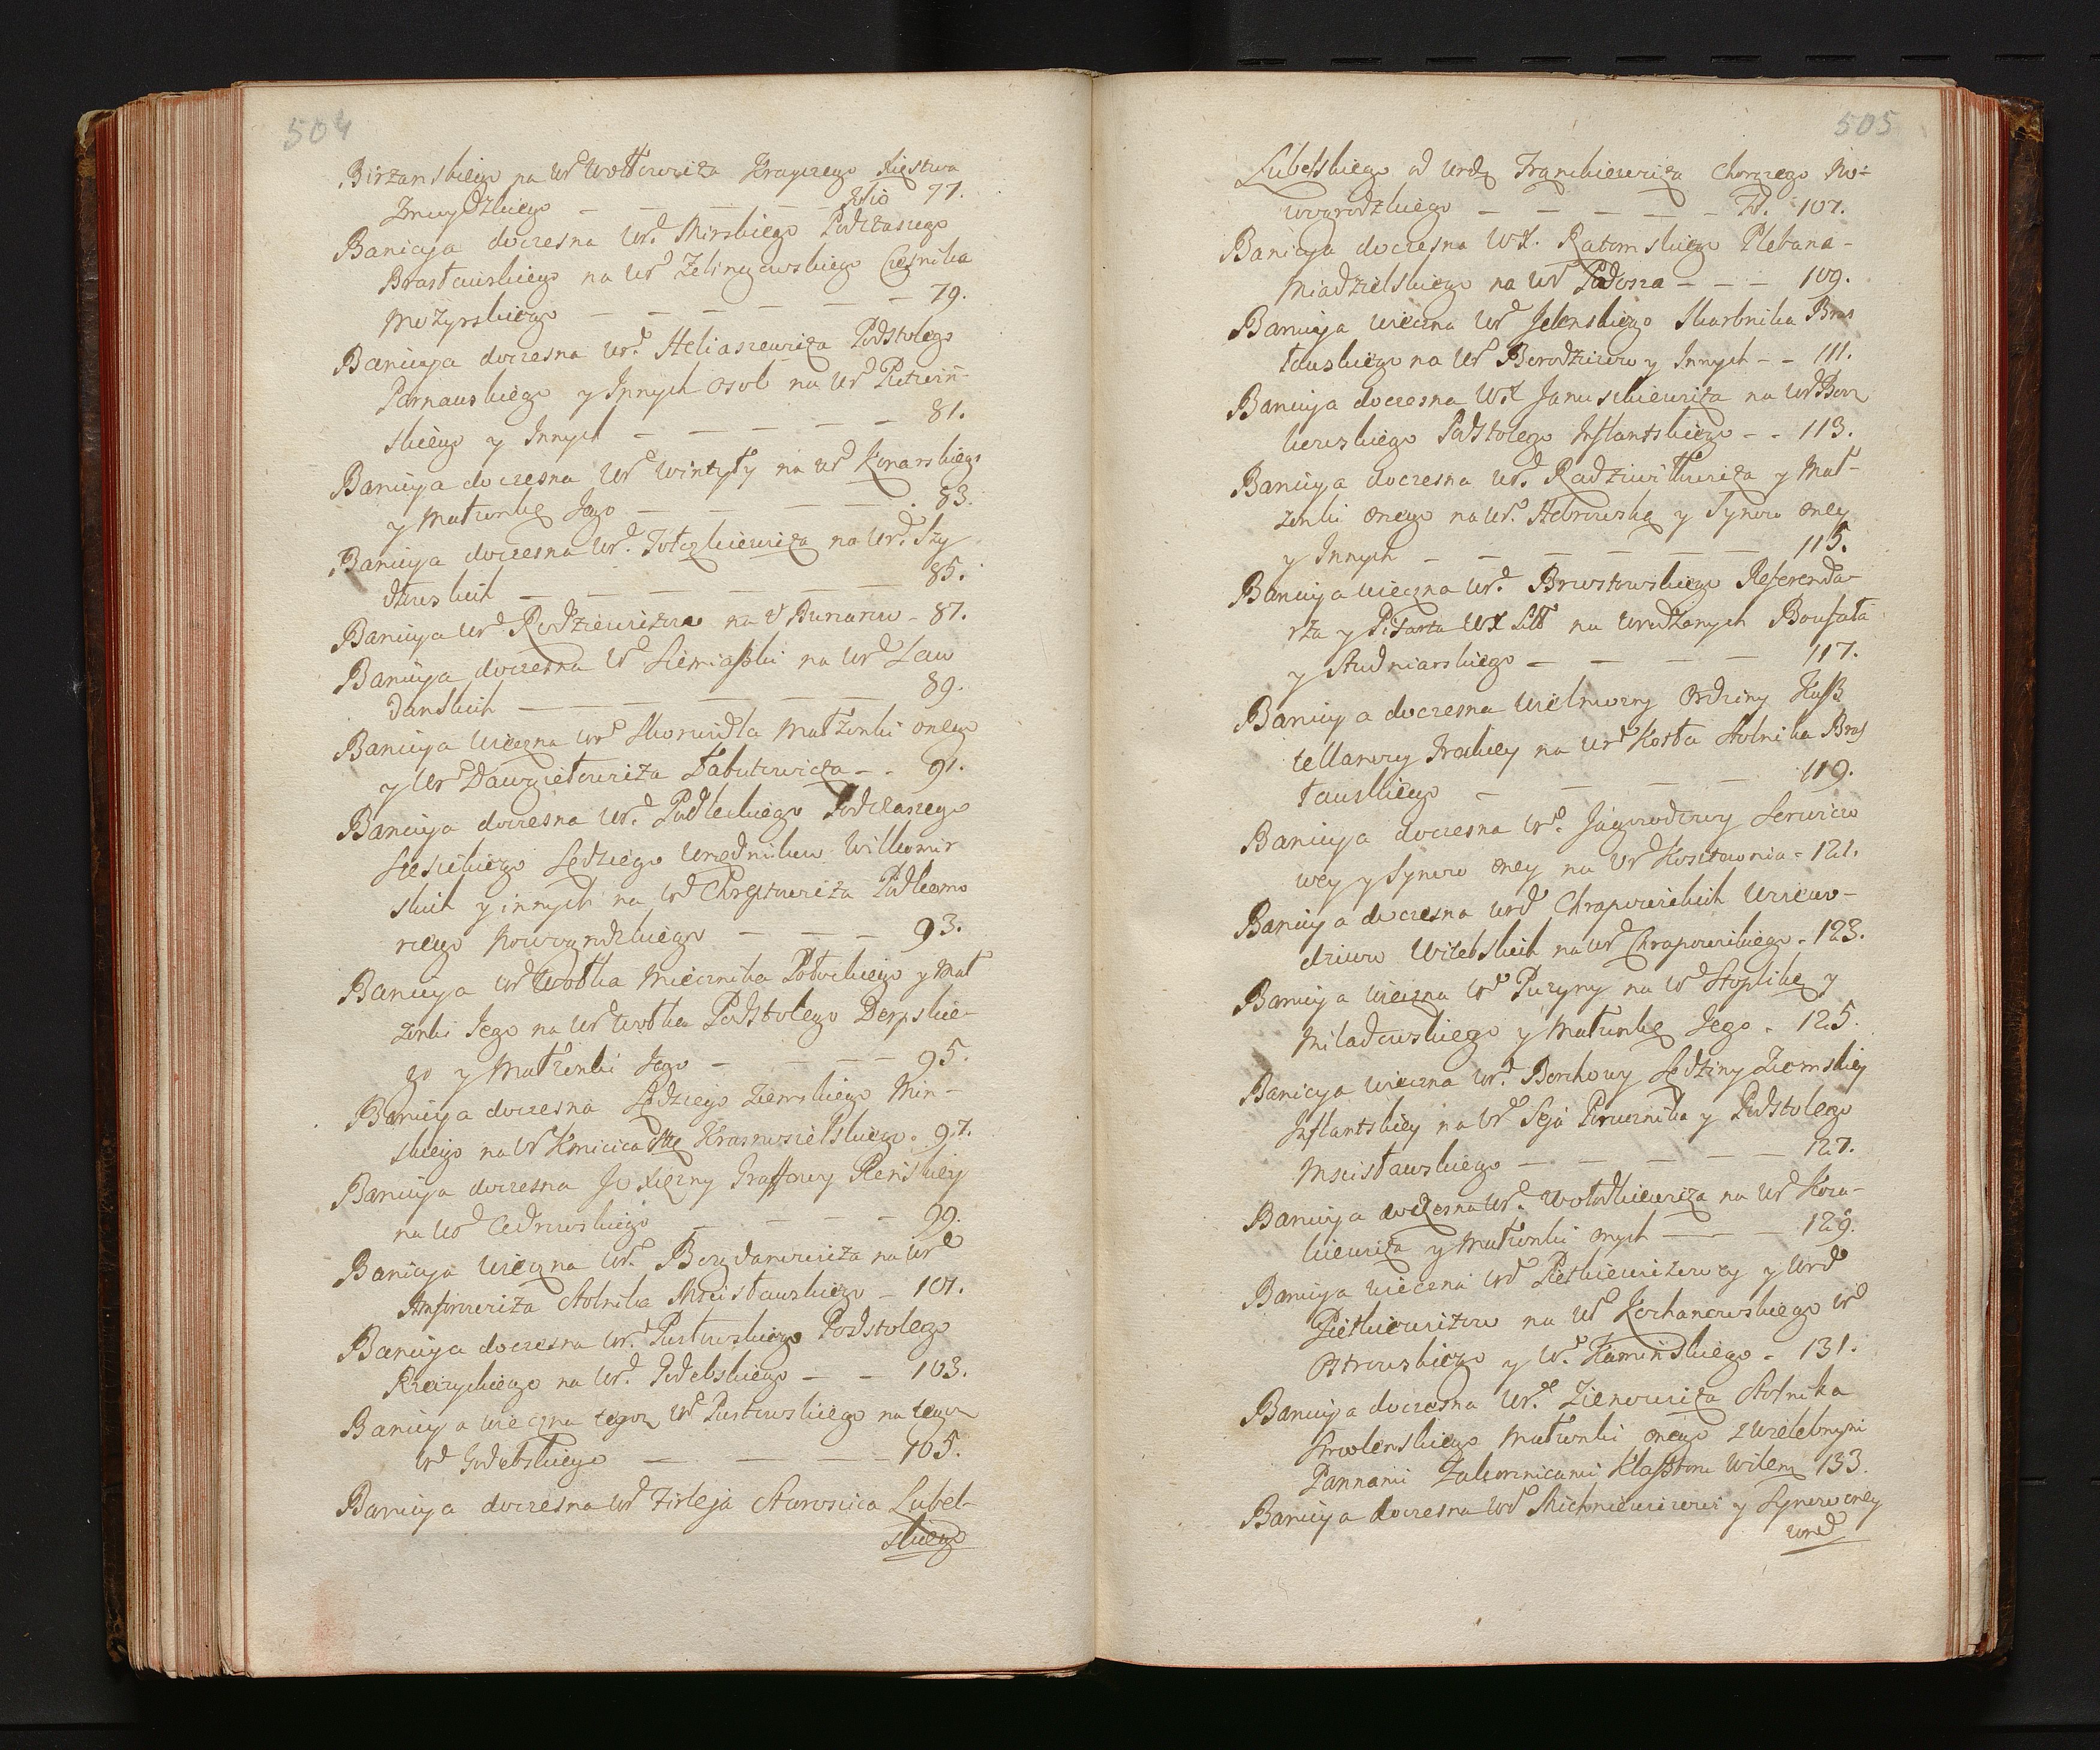 504
Birżanskiego na Ur Wołłowicza Krayczego Xięstwa
Zmuydzkiego — — — — Folio 77.
Banicya doczesna Ur. Mirskiego Podczaszego
Brasławskiego na Ur Zelinzewskiego Cześnika
Mozyrskiego — — — — — — 79.
Banicya doczesna Ur. Heliaszewicza Podstolego
Parnauskiego y Innych Osob na Ur
skiego y Innych — — — — — 81.
Banicya doczesna Ur Wintyły na Ur Konarskiego
y Małżonkę Jego — — — — . 83.
Banicya doczesna Ur. Tołczkiewicza na Ur. Szy
dłowskich — — — — — 85.
Banicya Ur Radziewiczow na U Bucznow - 87.
Banicya doczesna U Siemiaszki na Ur Law
danskich — — — — — 89.
Banicya wieczna Ur Skorwidła Małżonki onego
y Ur Dawgiełowicza Łabutowicza - . 91.
Banicya doczesna Ur. Podleckiego Podczaszego
Siesickiego Sędziego Urzędnikow Wiłkomir
skich y innych na Ur Chreptowicza Podkomo
rzego Nowogrodzkiego — — — 93.
Banicya Ur Wołka Miecznika Połockiego y Mał
żonki Jego na Ur Wołka Podstolego Derpskie-
go y Małżonki Jego — — — — 95.
Banicya doczesna Sędziego Ziemskiego Min-
skiego na Ur Kmicica Stę Krasnosielskiego . 97.
Banicya doczesna Jo Xiężny Graffowy Płenskiey
na Ur Cedrowskiego — — — — 99.
Banicya wieczna Ur. Bogdanowicza na Ur
Anforowicza Stolnika Mscisławskiego - 101.
Banicya doczesna Ur. Pusłowskiego Podstolego
Rzeczyckiego na Ur. Godebskiego — — 103.
Banicya wieczna tegoż Ur Pusłowskiego na tegoż
Ur Godebskiego — — — — 105.
Banicya doczesna Ur Firleja Starosica Lubel-
skiego
505
Lubelskiego od Urdz Franckiewicza Chorążego No-
wogrodzkiego — — — — — Fol. 107.
Banicya doczesna WX. Ratomskiego Plebana -
Miadzielskiego na Ur Podosza — — — 109.
Banicya wieczna Ur Jelenskiego Skarbnika Bras
ławskiego na Ur Borodziczow y Innych - - 111.
Banicya doczesna WX Januszkiewicza na Ur Bor
kowskiego Podstolego Inflantskiego - - 113.
Banicya doczesna Ur. Radziwiłłowicza y Mał-
żonki onego na Ur. Hebrowską y Synow oney
y Innych — — — — — — 115.
Banicya wieczna Ur. Brzostowskiego Referenda-
rza y Pisarza WX Litt na Urodzonych Boufała
y Studniarskiego — — — — 117.
Banicya doczesna Wielmożny Ordziny Kasz
tellanowy Trockiey na Ur Kosła Stolnika Bras
ławskiego — — — — 119.
Banicya doczesna Ur. Jagwodzowy Serwico
wey y Synow oney na Ur Kosztownia - 121.
Banicya doczesna Urd Chrapowickich Woiewo-
dzicow Witebskich na Ur Chrapowickiego - 123.
Banicya wieczna Ur Puzyny na Ur Stoplikę y
Miładowskiego y Małżonkę Jego . 125.
Banicya wieczna Ur. Borchowy Sędziny Ziemskiey
Inflantskiey na Ur Seja Porucznika y Podstolego
Mscisławskiego — — — — — 127.
Banicya doczesna Ur. Wołodkiewicza na Ur Koza-
kiewicza y Małżonki onych — — — 129.
Banicya wieczna Urd Pietkiewiczowey y Urd
Pietkiewiczow na Ur Kochanowskiego Ur
Ostrowskiego y Ur. Kaminskiego - 131.
Banicya doczesna Ur. Zienowicza Stolnika
Smolenskiego Małżonki onego z Wielebnymi
Pannami Zakonnicami Klasztoru Wilen 133.
Banicya doczesna Urd Michniewiczowi y Synow oney
Urod